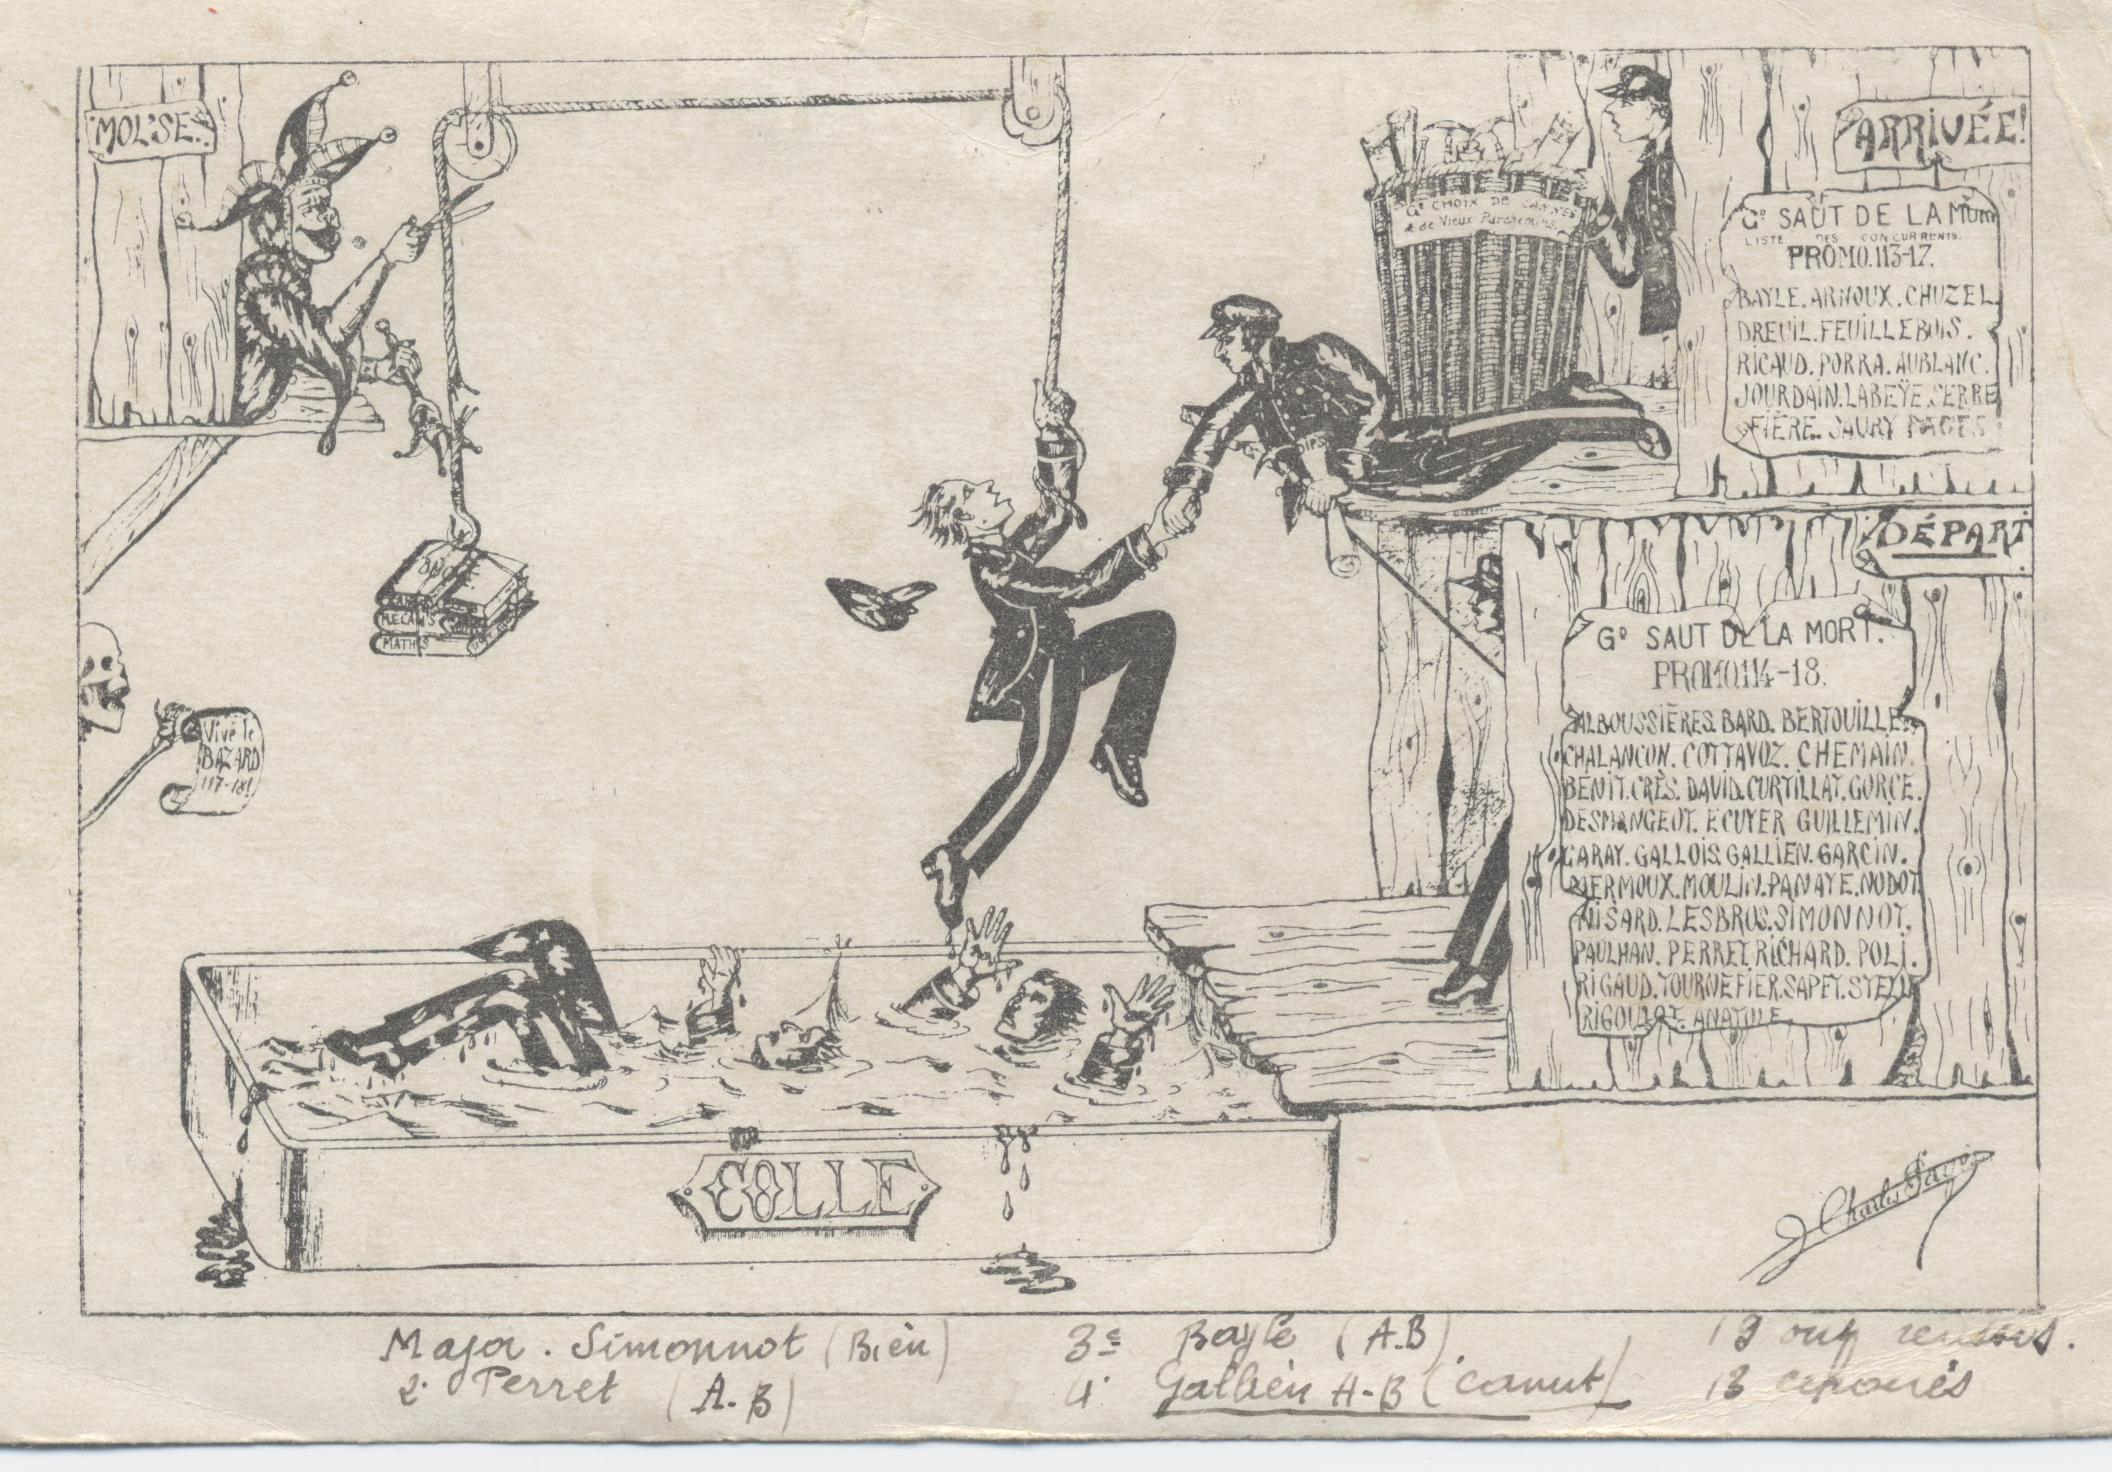 MOL'SE.
ARRIVÉE!
Gd CHOIX DE CANNES
& de Vieux Parchemins
Gd SAUT DE LA MORT
LISTE DES CONCURRENTS.
PROMO.113-17.
BAYLE. ARNOUX. CHUZEL.
DREUIL. FEUILLEBOIS.
RICAUD. PORRA. AUBLANC.
JOURDAIN. LABEŸE. SERRE
FIÈRE. SAURY PAGES
DIPS
DÉPART
MÉCAN'S
MATHS
Gd SAUT DE LA MORT.
PROMO114-18.
ALBOUSSIÈRES. BARD. BERTOUILLE.
CHALANCON. COTTAVOZ. CHEMAIN.
BENIT. CRÈS. DAVID. CURTILLAT. GORCE.
DESMANGEOT. ECUYER GUILLEMIN.
GARAY. GALLOIS. GALLIEN. GARCIN.
MERMOUX. MOULIN. PANAYE. NODOT
NISARD. LESBROS. SIMONNOT.
PAULHAN. PERRET. RICHARD. POLI.
RIGAUD. TOURNEFIER. SAPET.
RIGOULOT. ANATOLE
Vive le
BAZARD
117-18!
COLLE
J Charles Pagès
Major. Simonnot (Bien) 3e Bayle (A.B) 19 ont réussis.
2e Perret (A.B) 4e Gallien A-B (canut)